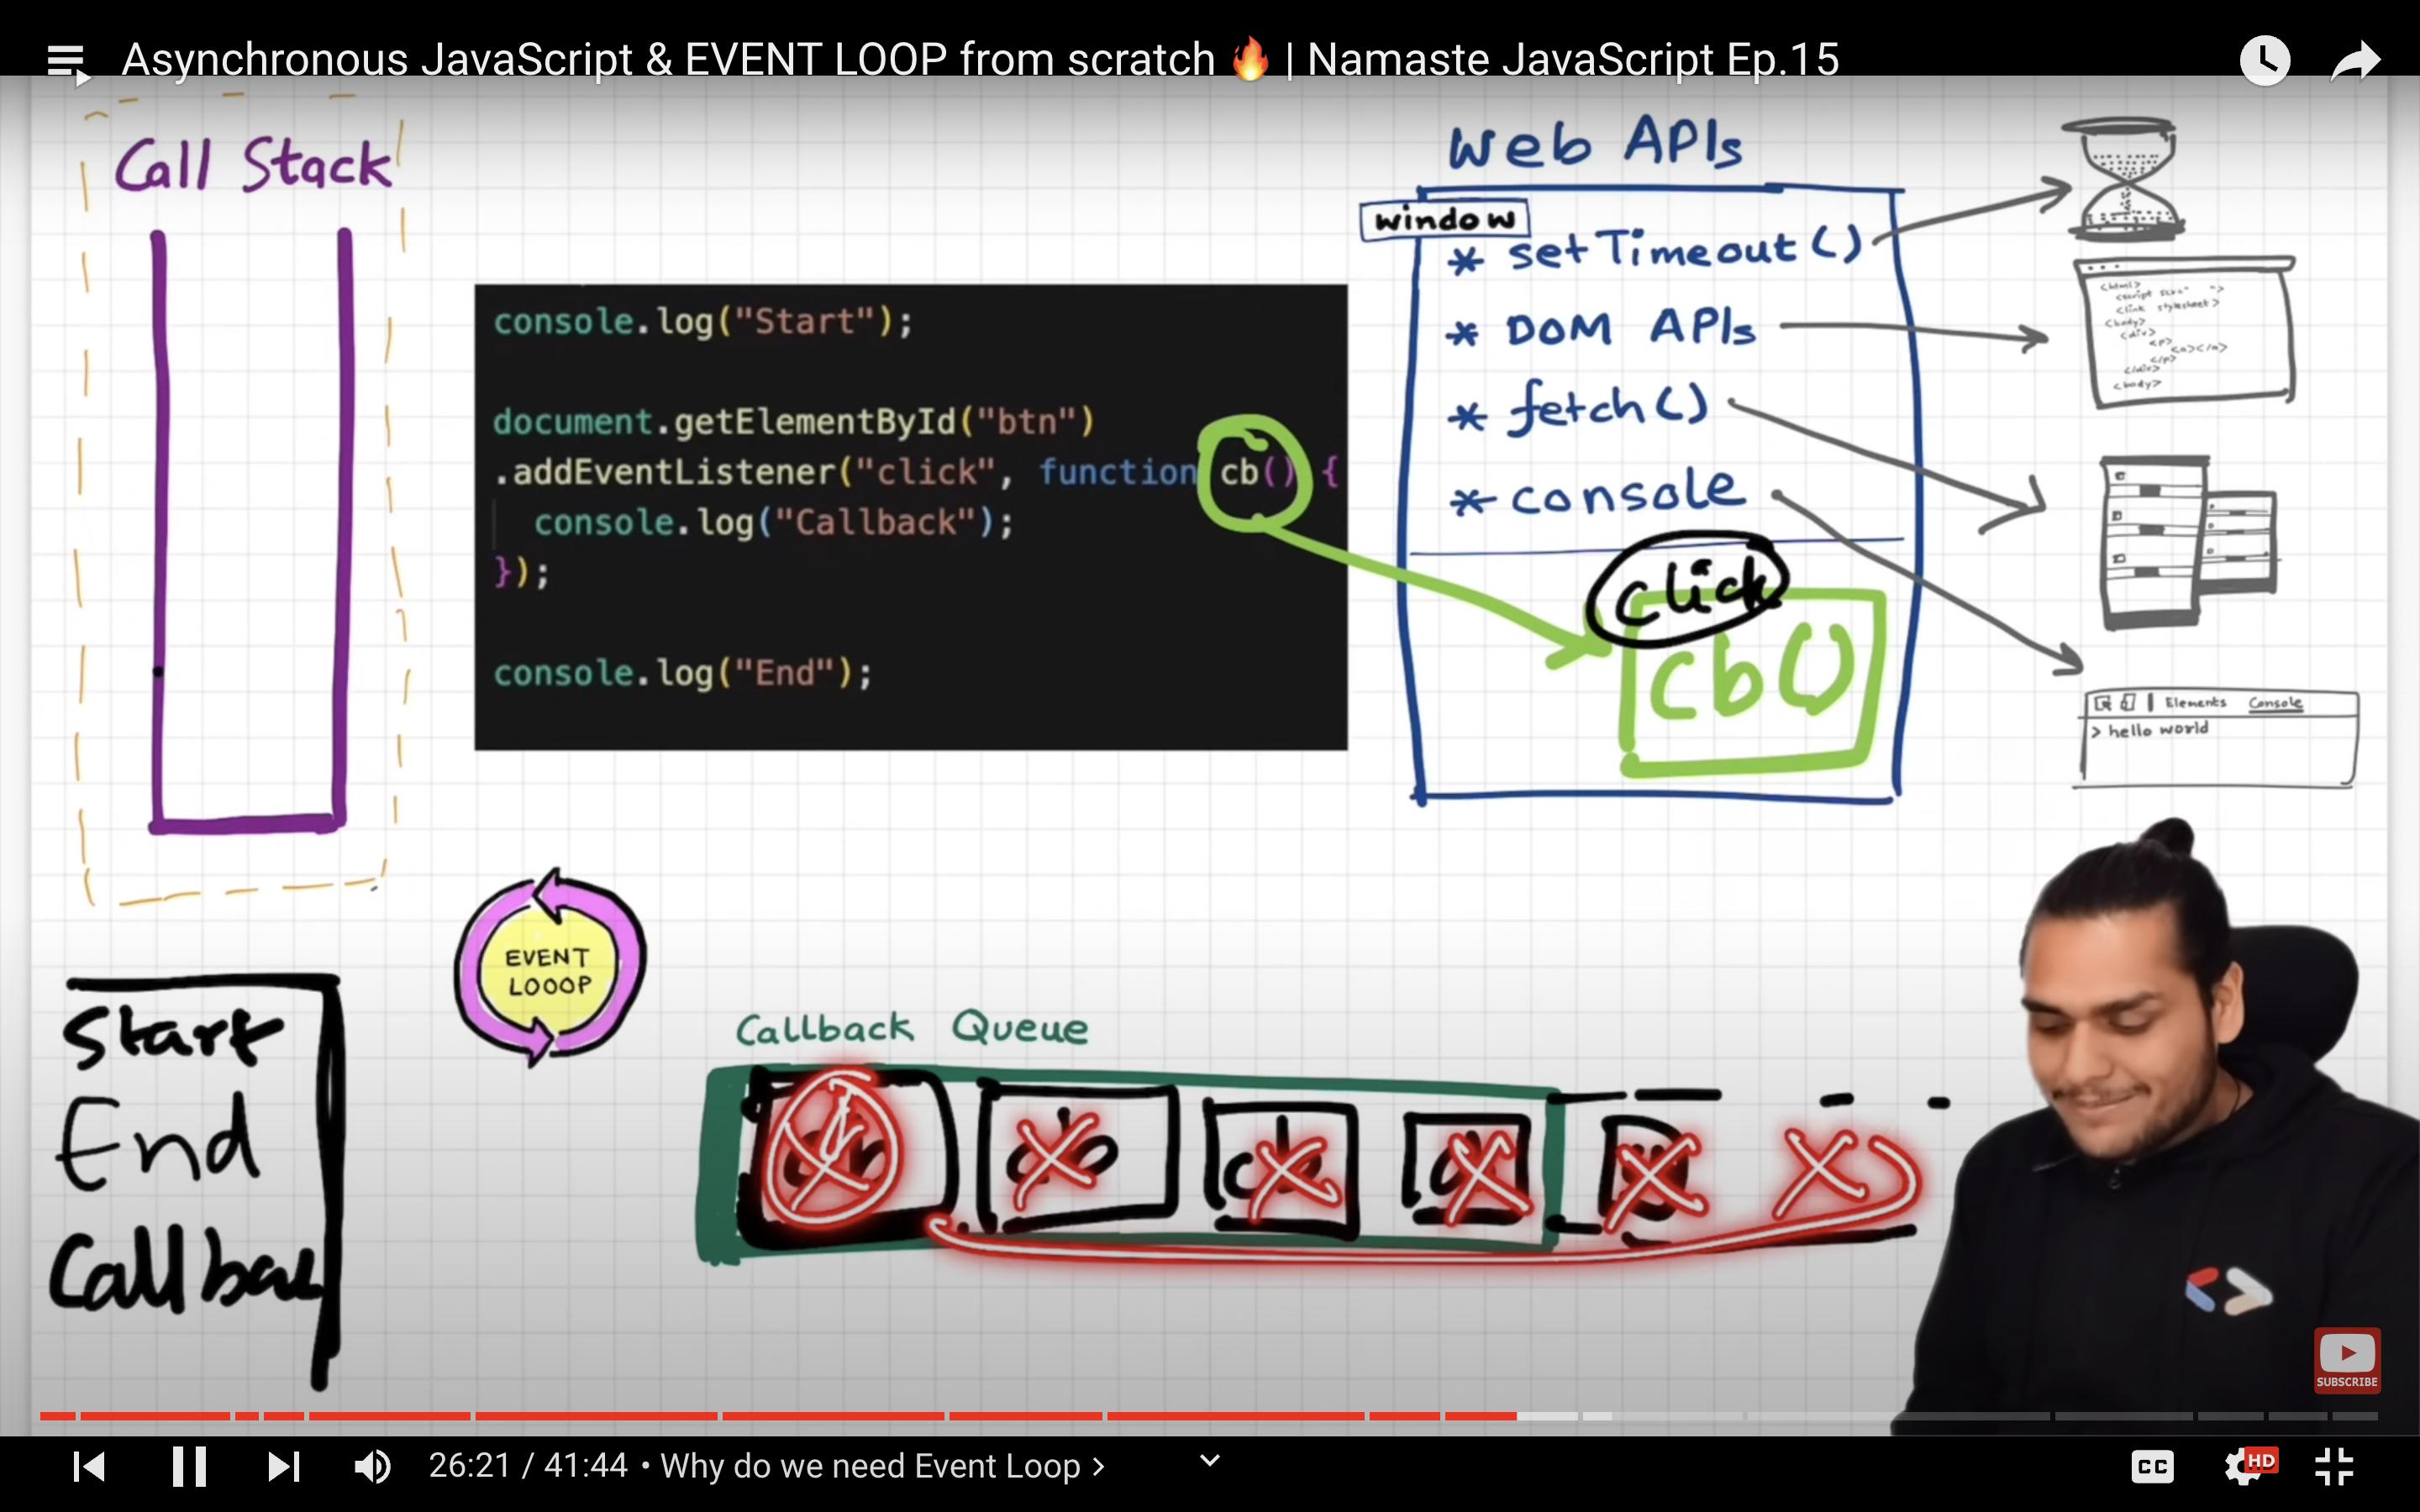 Asynchronous JavaScript & EVENT LOOP from scratch 🔥 | Namaste JavaScript Ep.15
Call Stack
console.log("Start");
document.getElementById("btn")
.addEventListener("click", function cb() {
console.log("Callback");
});
console.log("End");
Web APIs
window
* setTimeout()
* DOM APIs
* fetch()
* console
click
cb()
<html>
<body>
<div>
<p>
<a></a>
</p>
</div>
<body>
Elements Console
> hello world
EVENT
LOOOP
Start
End
Callbac
Callback Queue
cb
SUBSCRIBE
26:21 / 41:44 • Why do we need Event Loop >
CC
HD